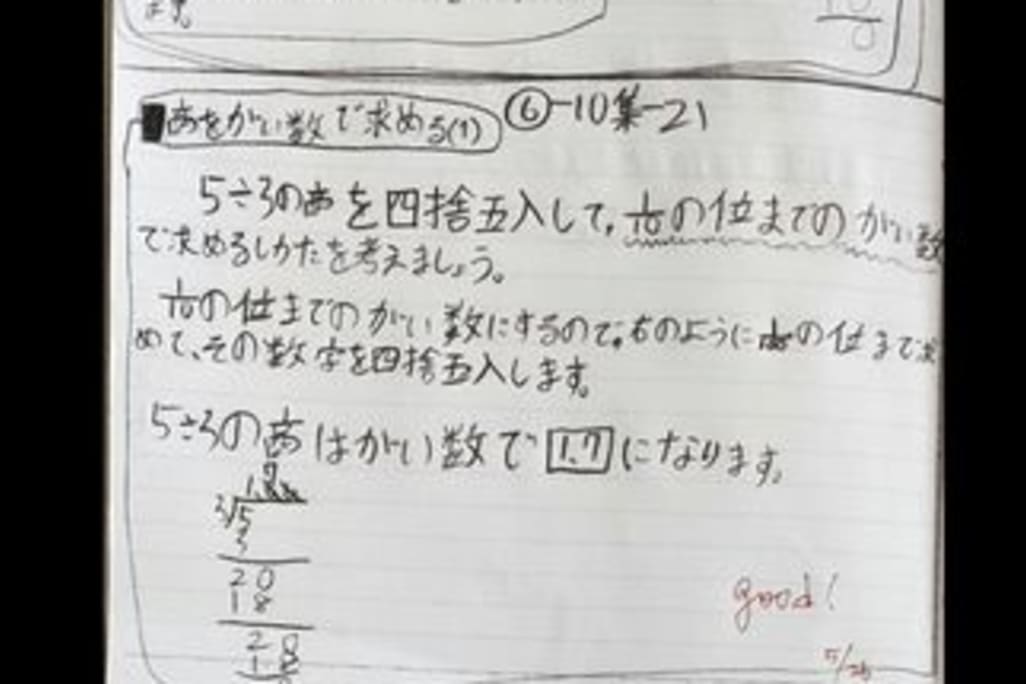 す。
商をがい数で求める(1) ⑥-10集-21
5÷3の商を四捨五入して、1/10の位までのがい数
で求めるしかたを考えましょう。
1/10の位までのがい数にするので、右のように の位まで求
めて、その数字を四捨五入します。
5÷3の商はがい数で 1.7 になります。
7
1.
3√5
3
20
18
20
18
good!
5/26